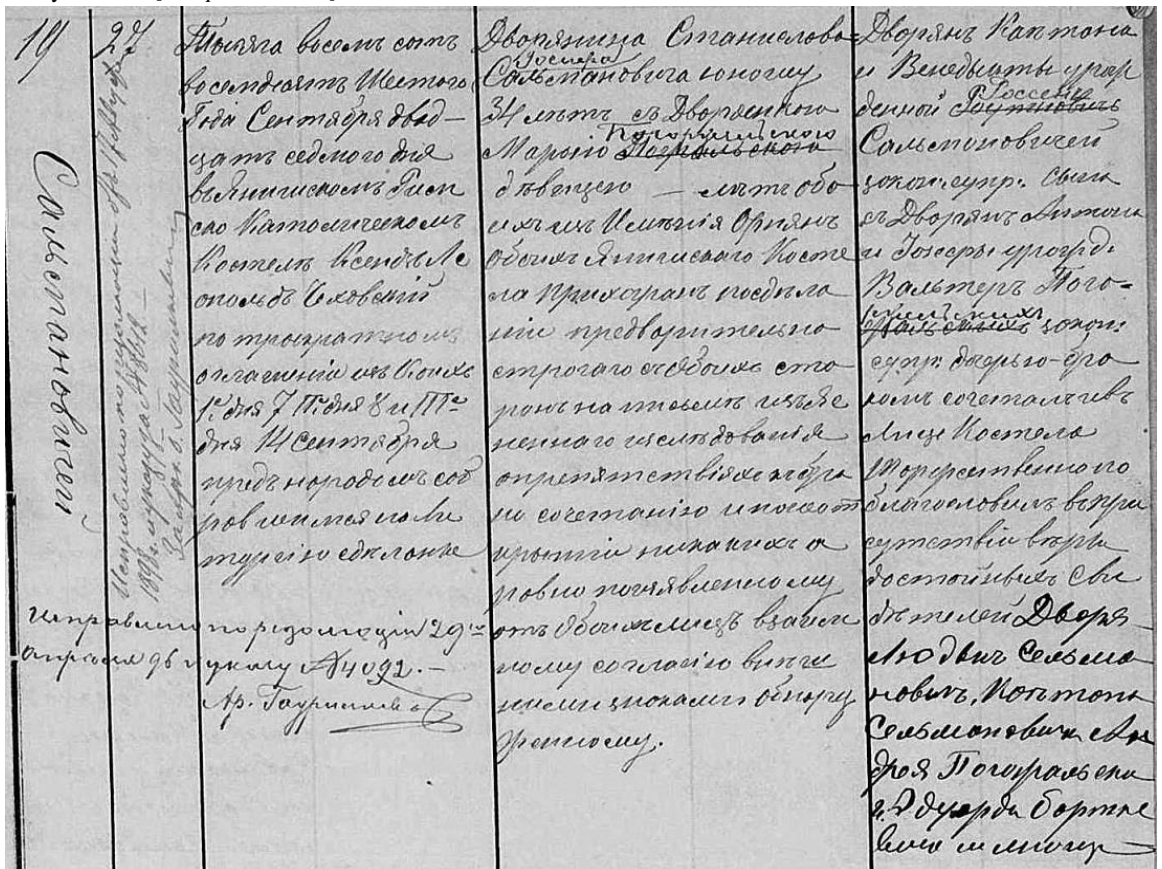 19
27
Сальмановичей
Тысяча восемь сотъ
восемдесятъ Шестого
Года Сентября двад-
цатъ седмого дня
въ Янишскомъ Рим
ско Католическомъ
Костелѣ Ксендзъ Ле
опольдъ Чеховскій
по троекратномъ
оглашеніи изъ коихъ
1го дня 7 II дня 8 и IIIго
дня 14 Сентября
предъ народомъ соб
равшимся на Ли
тургію сдѣланне
Исправлено по резолюціи 29го
апрѣля 96 г указу №4092. —
Дворянина Станислова
Госцера
Сальмановича юношу
34 лѣтъ съ Дворянкою
Погоральского
Марьею
дѣвецею — лѣтъ обо
ихъ изъ Имѣнія Орнянъ
обоихъ Янишскаго Косте
ла Прихожанъ послѣ
ніи предворительно
строгаго съ обоихъ сто
ронъ на писемъ изъяс
неннаго изслѣдованія
опрепятствіяхъ къ бра
ку сочетанію и неот
крытіи никакихъ а
ровно по изявленному
отъ обоихъ лицъ взаим
ному согласію внѣш
ними знаками обнару
женному.
Дворянъ Каэтона
и Бенедыкты урож
денной
Сальмоновичей
закон: супр: сына
съ Дворянъ Антона
и Юзефы урожд:
Вальтеръ Пого-
закон:
супр: дочерью - бра
комъ сочеталъ и въ
лице Костела
торжественно по
благословилъ въ при
сутствіи вѣры
достойныхъ Сви
дѣтелей Дворя
Людвик Сельма
новичъ, Каэтона
Сельмоновича Ан
дрея Погоральска
г. Эдуарда Бортке
вича и многих